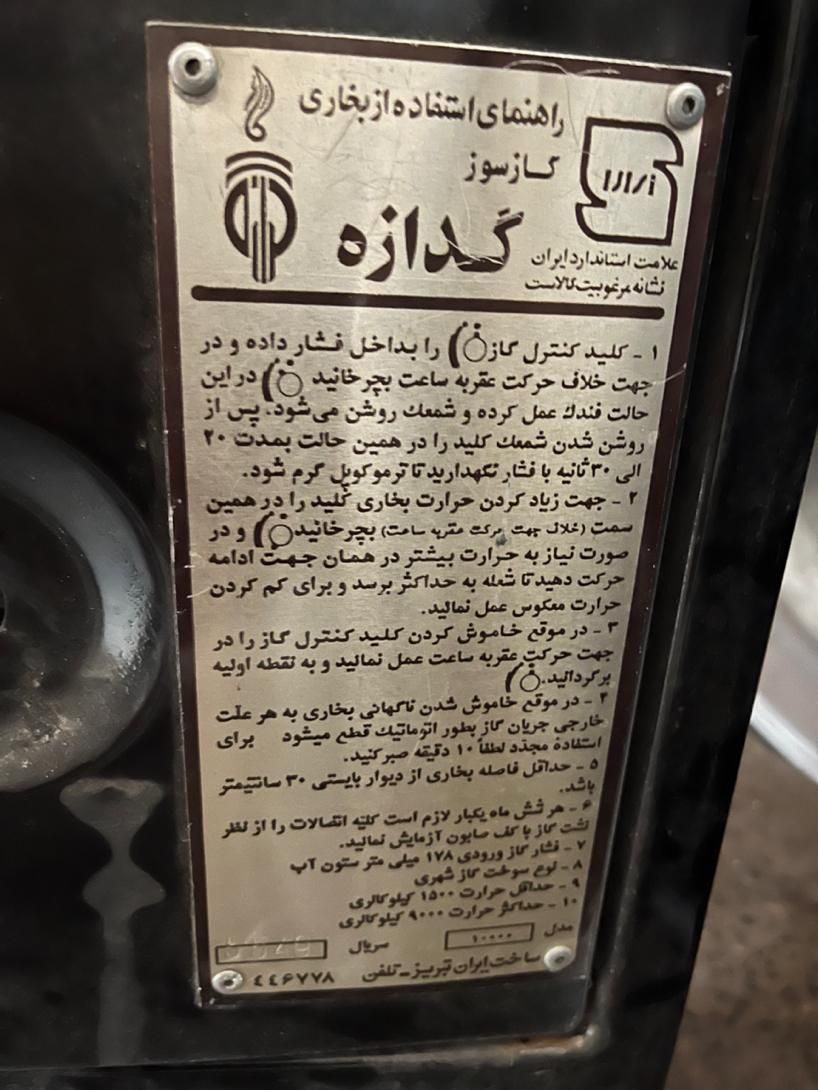 راهنمای استفاده از بخاری
گازسوز
گدازه
علامت استاندارد ایران
نشانه مرغوبیت کالاست
۱ - کلید کنترل گاز را بداخل فشار داده و در
جهت خلاف حرکت عقربه ساعت بچرخانید در این
حالت فندك عمل کرده و شمعك روشن می‌شود. پس از
روشن شدن شمعك کلید را در همین حالت بمدت ۲۰
الی ۳۰ ثانیه با فشار نگهدارید تا ترموکوپل گرم شود.
۲ - جهت زیاد کردن حرارت بخاری کلید را در همین
سمت (خلاف جهت حرکت عقربه ساعت) بچرخانید و در
صورت نیاز به حرارت بیشتر در همان جهت ادامه
حرکت دهید تا شعله به حداکثر برسد و برای کم کردن
حرارت معکوس عمل نمائید.
۳ - در موقع خاموش کردن کلید کنترل گاز را در
جهت حرکت عقربه ساعت عمل نمائید و به نقطه اولیه
برگردانید.
۴ - در موقع خاموش شدن ناگهانی بخاری به هر علّت
خارجی جریان گاز بطور اتوماتیك قطع میشود برای
استفاده مجدّد لطفاً ۱۰ دقیقه صبر کنید.
۵ - حداقل فاصله بخاری از دیوار بایستی ۳۰ سانتیمتر
باشد.
۶ - هر شش ماه یکبار لازم است کلیّه اتصالات را از نظر
نشت گاز با کف صابون آزمایش نمائید.
۷ - فشار گاز ورودی ۱۷۸ میلی متر ستون آب
۸ - نوع سوخت گاز شهری
۹ - حداقل حرارت ۱۵۰۰ کیلوکالری
۱۰ - حداکثر حرارت ۹۰۰۰ کیلوکالری
مدل ۱۰۰۰۰ سریال
ساخت ایران تبریز - تلفن ٤٤۶۷۷۸